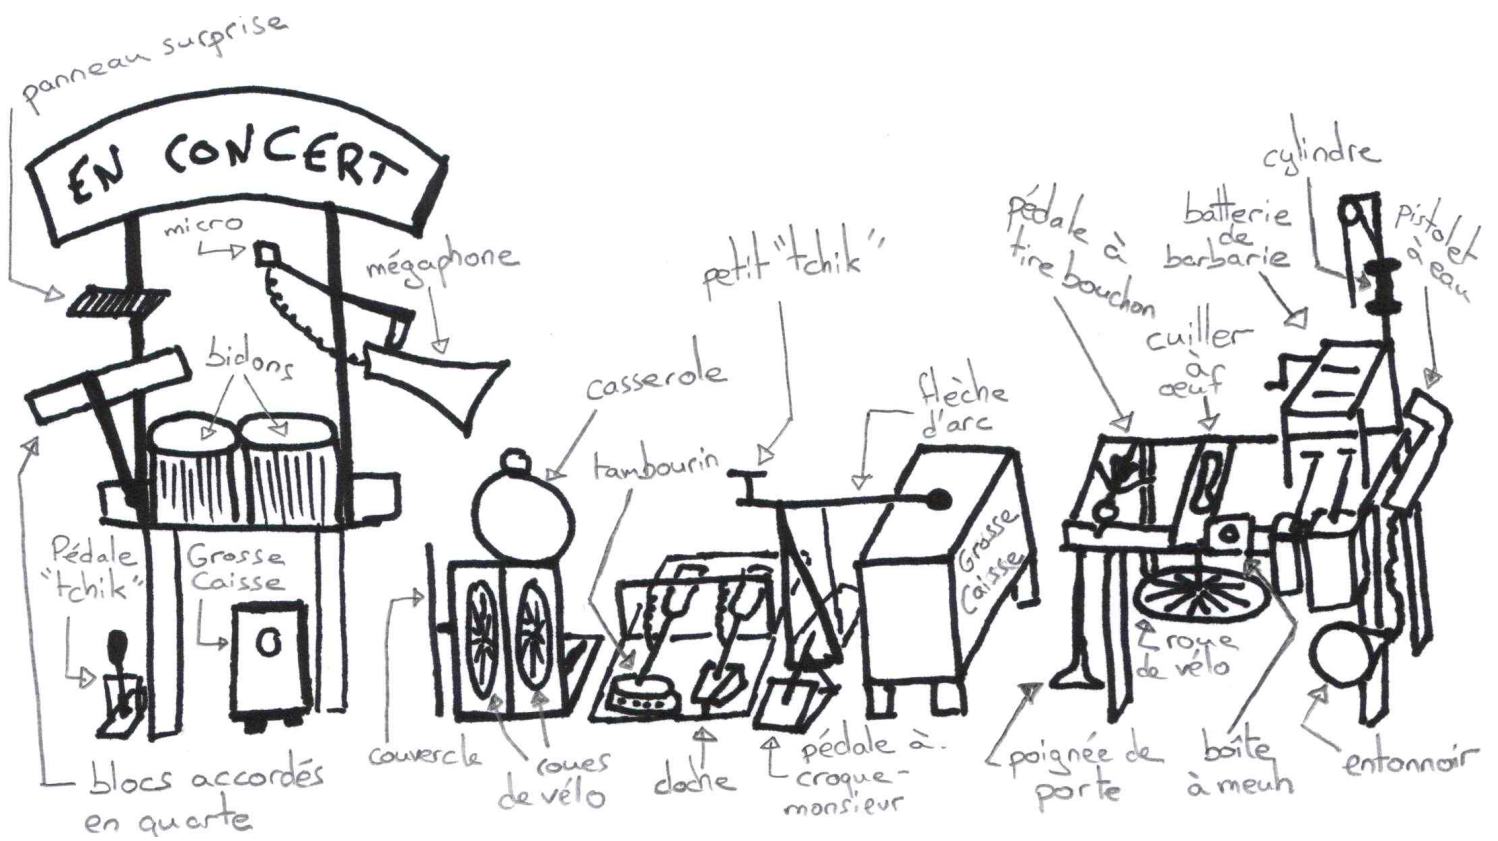 panneau surprise
EN CONCERT
micro
mégaphone
bidons
Pédale
"tchik"
Grosse
Caisse
blocs accordés
en quarte
casserole
tambourin
petit "tchik"
flèche
d'arc
Grosse
Caisse
couvercle
roues
de vélo
cloche
pédale à
croque-
monsieur
pédale à
tire bouchon
cuiller
à
œuf
batterie
de
barbarie
cylindre
pistolet
à eau
roue
de vélo
poignée de
porte
boîte
à meuh
entonnoir